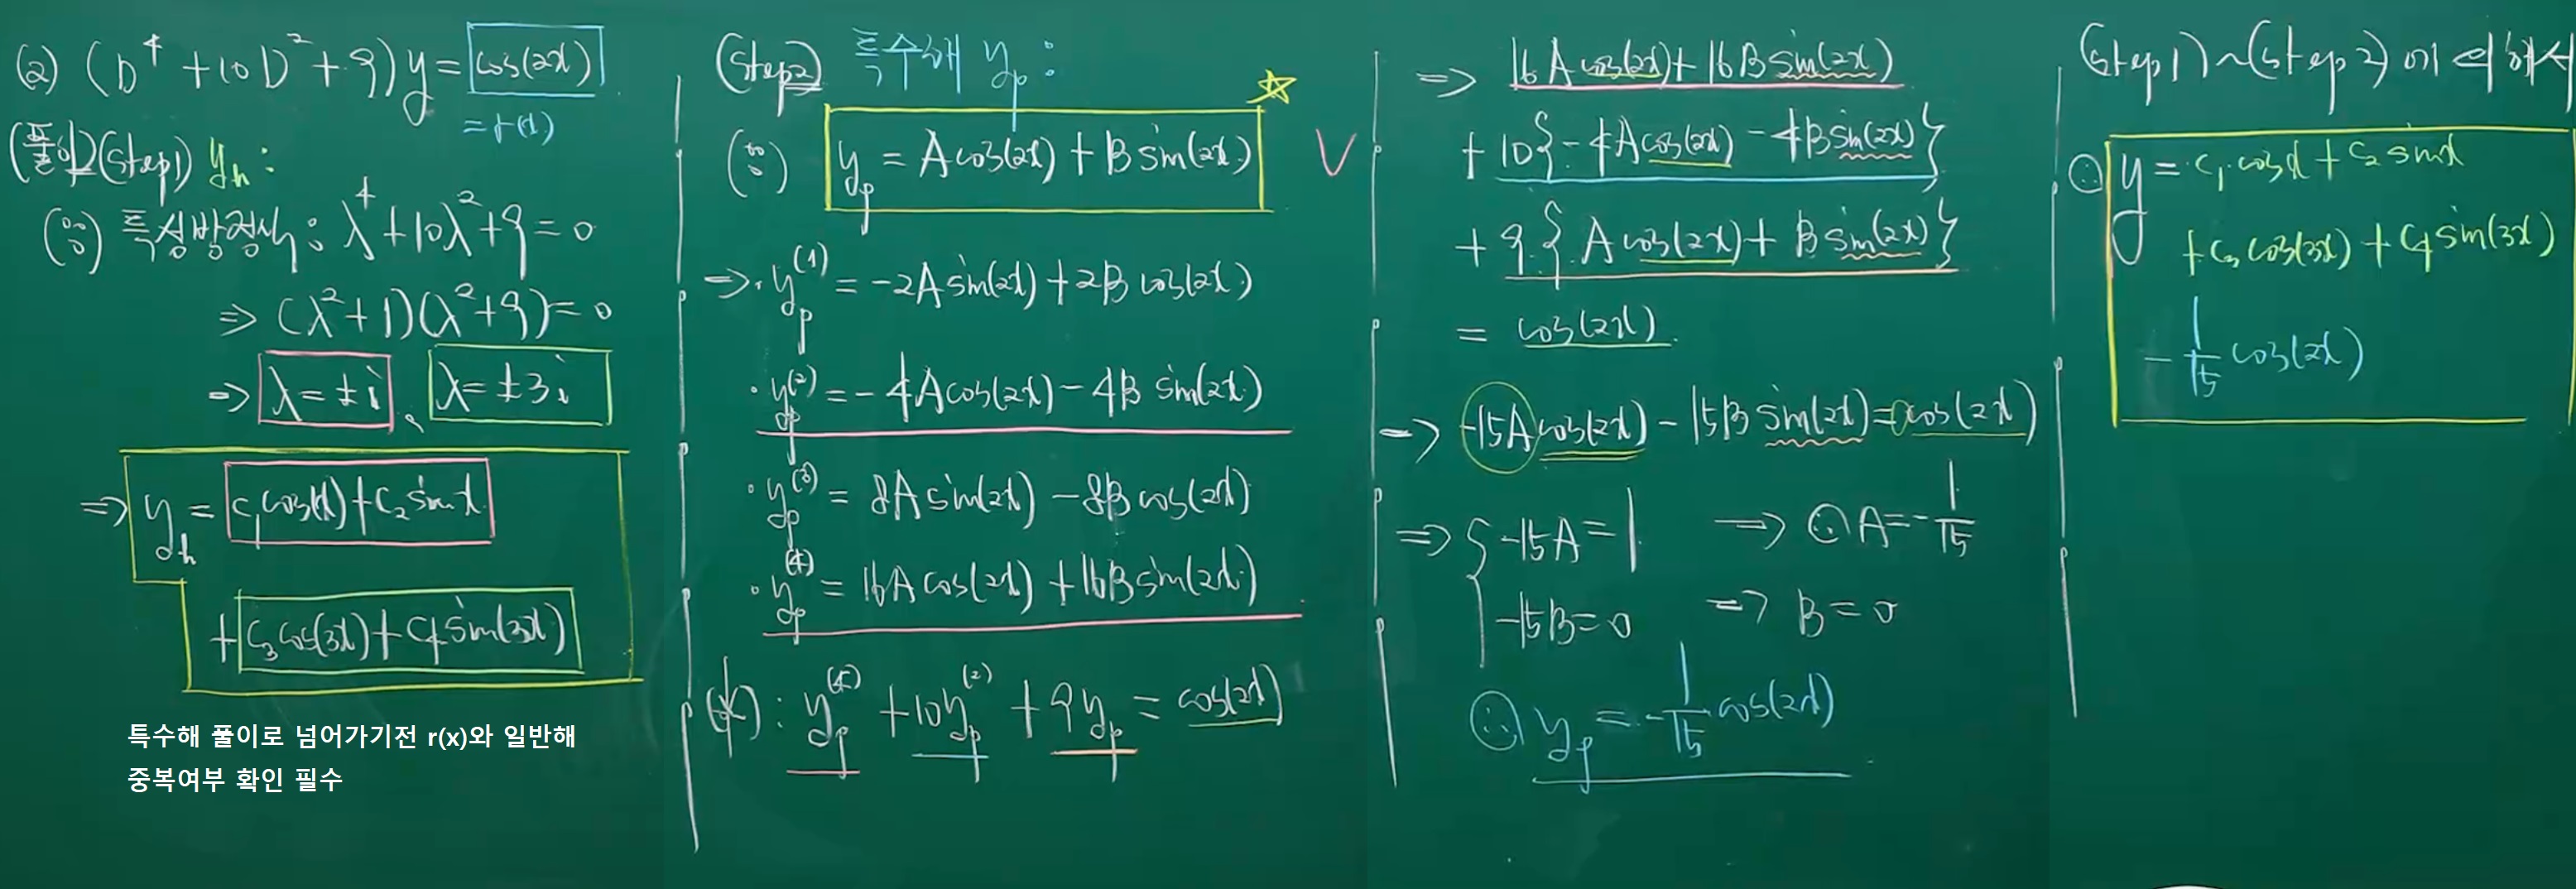 (2) (D⁴ + 10D² + 9)y = cos(2x)
= r(x)
(풀이) (step1) y_h :
(∵) 특성방정식 : λ⁴ + 10λ² + 9 = 0
⇒ (λ² + 1)(λ² + 9) = 0
⇒ λ = ±i 、 λ = ±3i
⇒ y_h = c₁cos(x) + c₂ sin x
+ c₃cos(3x) + c₄sin(3x)
특수해 풀이로 넘어가기전 r(x)와 일반해
중복여부 확인 필수
(step2) 특수해 y_p :
(∵) y_p = A cos(2x) + B sin(2x) ☆ V
⇒ · y_p⁽¹⁾ = -2A sin(2x) + 2B cos(2x)
· y_p⁽²⁾ = -4A cos(2x) - 4B sin(2x)
· y_p⁽³⁾ = 8A sin(2x) - 8B cos(2x)
· y_p⁽⁴⁾ = 16A cos(2x) + 16B sin(2x)
(*) : y_p⁽⁴⁾ + 10y_p⁽²⁾ + 9y_p = cos(2x)
⇒ 16A cos(2x) + 16B sin(2x)
+ 10{-4A cos(2x) - 4B sin(2x)}
+ 9{A cos(2x) + B sin(2x)}
= cos(2x)
⇒ -15A cos(2x) - 15B sin(2x) = cos(2x)
⇒ { -15A = 1 → ∴ A = -1/15
-15B = 0 → B = 0
∴ y_p = -1/15 cos(2x)
(step1)~(step2)에 의해서
∴ y = c₁ cos x + c₂ sin x
+ c₃ cos(3x) + c₄ sin(3x)
- 1/15 cos(2x)